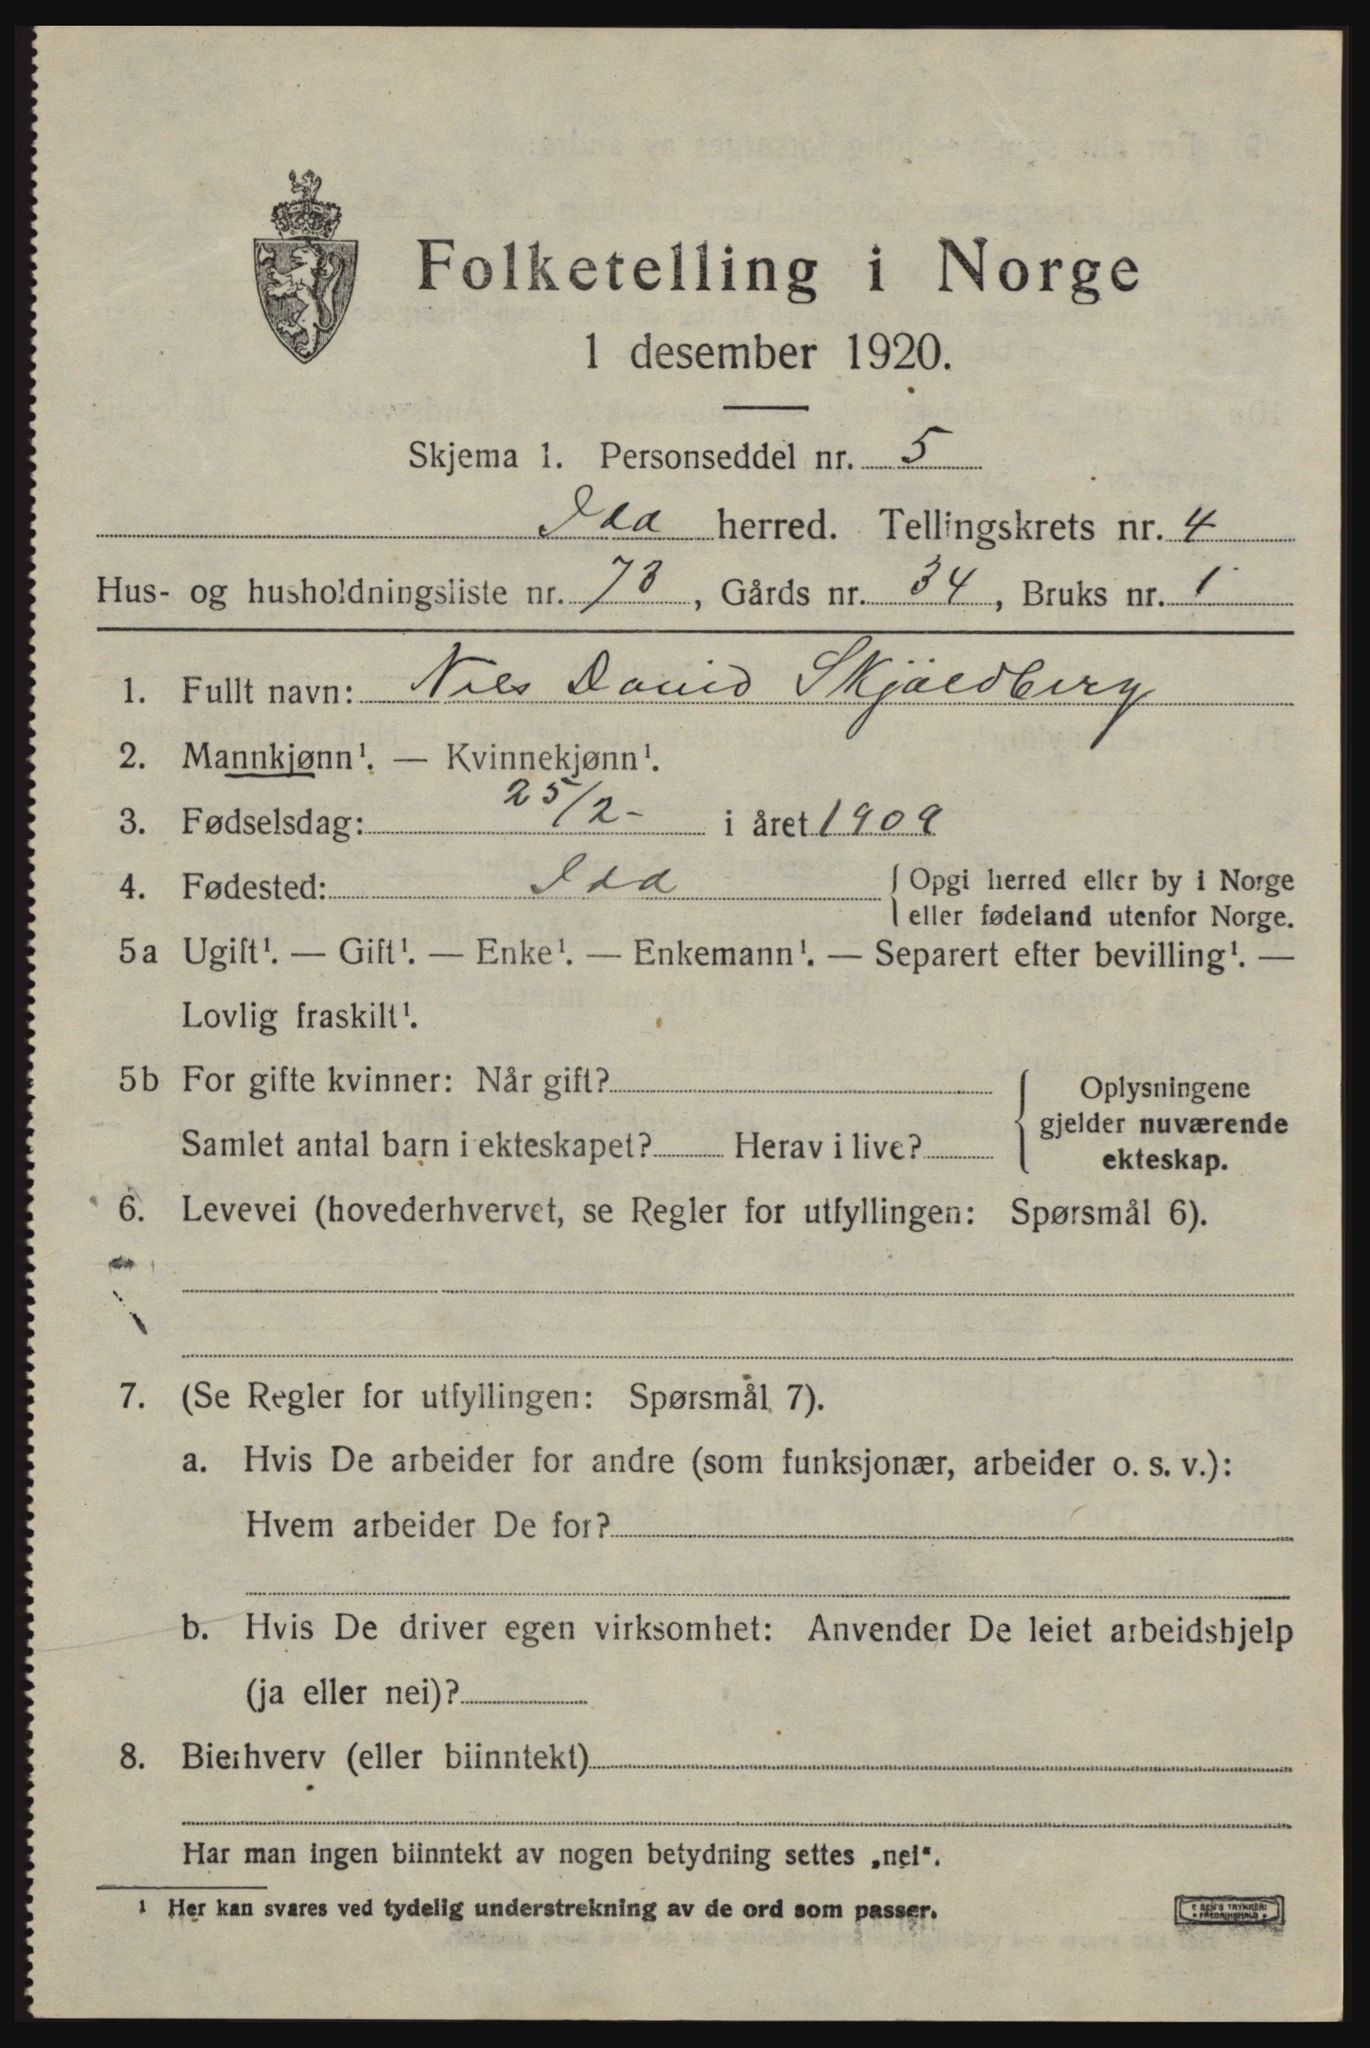 Folketelling i Norge
1 desember 1920.
Skjema 1. Personseddel nr. 5
Idd herred. Tellingskrets nr. 4
Hus- og husholdningsliste nr. 73, Gårds nr. 34, Bruks nr. 1
1. Fullt navn: Nils David Skjöldberg
2. Mannkjønn¹. — Kvinnekjønn¹.
3. Fødselsdag: 25/2- i året 1909
4. Fødested: Idd { Opgi herred eller by i Norge
eller fødeland utenfor Norge.
5a Ugift¹. — Gift¹. — Enke¹. — Enkemann¹. — Separert efter bevilling¹. —
Lovlig fraskilt¹.
5b For gifte kvinner: Når gift? { Oplysningene
gjelder nuværende
Samlet antal barn i ekteskapet? Herav i live? ekteskap.
6. Levevei (hovederhvervet, se Regler for utfyllingen: Spørsmål 6).
7. (Se Regler for utfyllingen: Spørsmål 7).
a. Hvis De arbeider for andre (som funksjonær, arbeider o. s. v.):
Hvem arbeider De for?
b. Hvis De driver egen virksomhet: Anvender De leiet arbeidshjelp
(ja eller nei)?
8. Bierhverv (eller biinntekt)
Har man ingen biinntekt av nogen betydning settes „nei“.
¹ Her kan svares ved tydelig understrekning av de ord som passer.